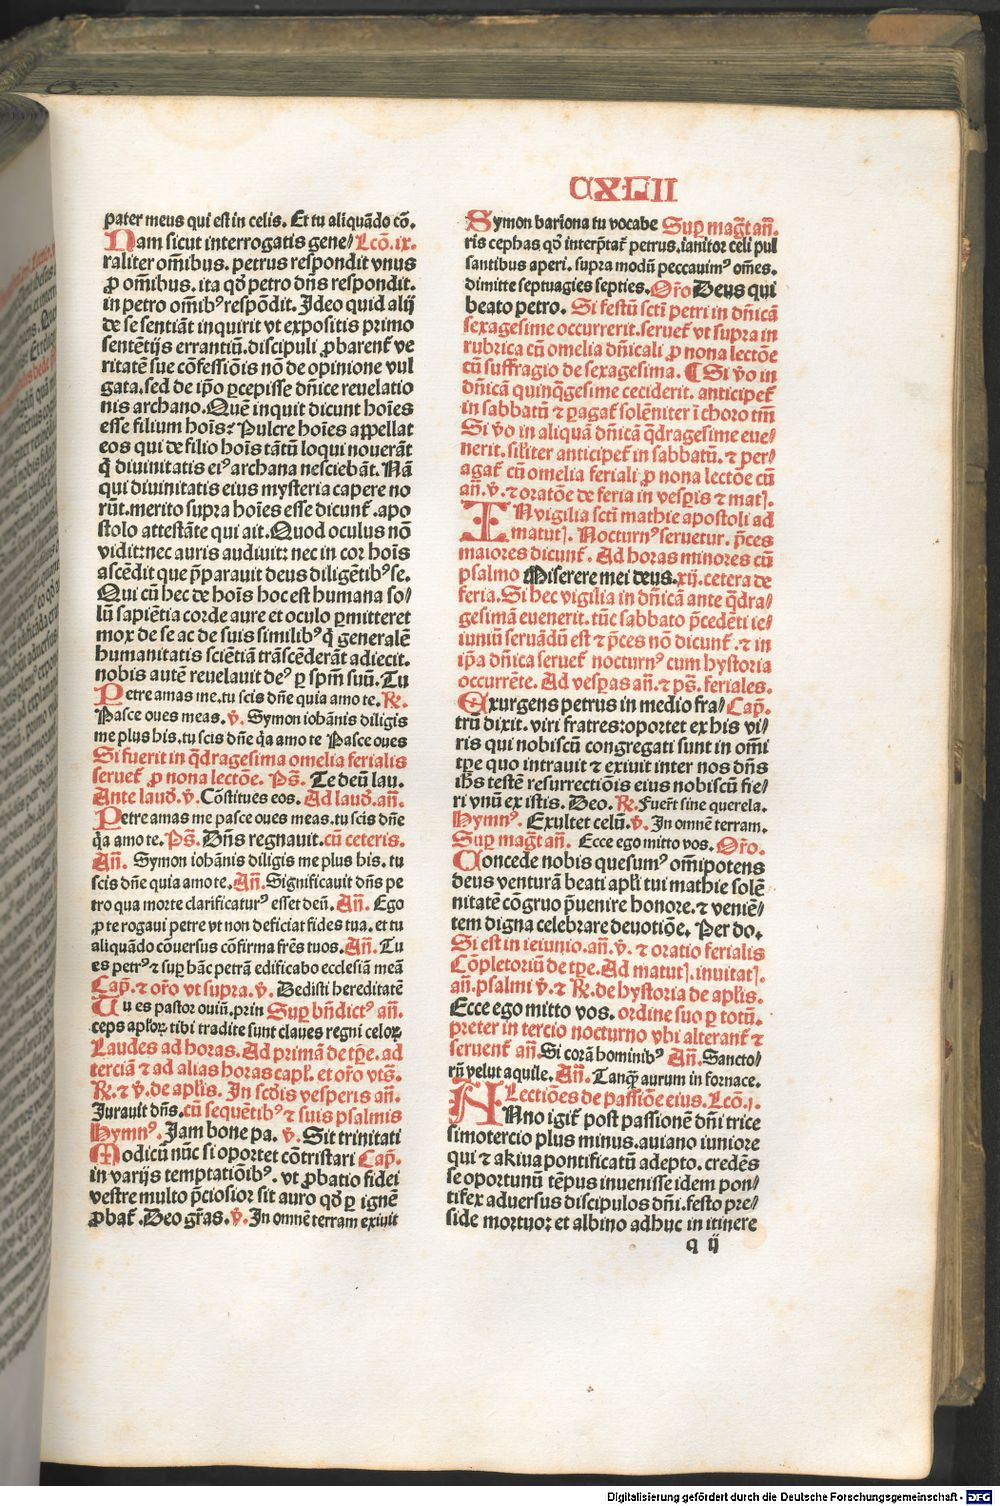 CXLII
pater meus qui est in celis. Et tu aliquādo cō.
Nam sicut interrogatis gene⸗ Lcō. ix.
raliter om̄ibus. petrus respondit vnus
ꝓ om̄ibus. ita qd̓ petro dn̄s respondit.
in petro om̄ibꝰ respōdit. Ideo quid alij
de se sentiāt inquirit vt expositis primo
sentētijs errantiū. discipuli ꝓbarent̄ ve
ritatē sue cōfessiōis nō de opinione vul
gata. sed de ip̄o ꝑcepisse dn̄ice reuelatio
nis archano. Quē inquit dicunt hoīes
esse filium hoīs? Pulcre hoīes appellat
eos qui de filio hoīs tātū loqui nouerāt
q̄ diuinitatis eiꝰ archana nesciebāt. Nā
qui diuinitatis eius mysteria capere no
rūt. merito supra hoīes esse dicunt̄. apo
stolo attestāte qui ait. Quod oculus nō
vidit: nec auris audiuit: nec in cor hoīs
ascēdit que p̄parauit deus diligētibꝰ se.
Qui cū hec de hoīs hoc est humana so⸗
lū sapiētia corde aure et oculo ꝑmitteret
mox de se ac de suis similibꝰ q̄ generalē
humanitatis sciētiā trāscēderāt adiecit.
nobis autē reuelauit deꝰ ꝑ spm̄ suū. Tu
Petre amas me. tu scis dn̄e quia amo te. ℞.
Pasce oues meas. ℣. Symon iohānis diligis
me plus his. tu scis dn̄e q̄a amo te Pasce oues
Si fuerit in q̄dragesima omelia ferialis
seruet̄ ꝓ nona lectōe. Ps̄. Te deū lau.
Ante laud̓. ℣. Cōstitues eos. Ad laud̓. an̄.
Petre amas me pasce oues meas. tu scis dn̄e
q̄a amo te. Ps̄. Dn̄s regnauit. cū ceteris.
An̄. Symon iohānis diligis me plus his. tu
scis dn̄e quia amo te. An̄. Significauit dn̄s pe
tro qua morte clarificaturꝰ esset deū. An̄. Ego
ꝓ te rogaui petre vt non deficiat fides tua. et tu
aliquādo cōuersus cōfirma frēs tuos. An̄. Tu
es petrꝰ ⁊ suꝑ hāc petrā edificabo ecclesiā meā
Cap̄. ⁊ or̄o vt supra. ℣. Dedisti hereditatē
Tu es pastor ouiū. prin Suꝑ bn̄dictꝰ an̄.
ceps apl̓oꝝ tibi tradite sunt claues regni celoꝝ
Laudes ad horas. Ad primā de tp̄e. ad
terciā ⁊ ad alias horas capl̓. et or̄o vts̄.
℞. ⁊ ℣. de apl̓is. In scd̓is vesperis an̄.
Jurauit dn̄s. cū sequētibꝰ ⁊ suis psalmis
Hymnꝰ. Jam bone pa. ℣. Sit trinitati
Modicū nūc si oportet cōtristari Cap̄.
in varijs temptatiōibꝰ. vt ꝓbatio fidei
vestre multo p̄ciosior sit auro qd̓ ꝑ ignē
ꝓbat̄. Deo gr̄as. ℣. In omnē terram exiuit
Symon bariona tu vocabe Suꝑ magt̄ an̄.
ris cephas qd̓ interp̄tat̄ petrus. ianitor celi pul
santibus aperi. supra modū peccauimꝰ om̄es.
dimitte septuagies septies. Or̄o Deus qui
beato petro. Si festū scti petri in dn̄icā
sexagesime occurrerit. seruet̄ vt supra in
rubrica cū omelia dn̄icali ꝓ nona lectōe
cū suffragio de sexagesima. ¶ Si v̓o in
dn̄icā quinq̄gesime ceciderit. anticipet̄
in sabbatū ⁊ ꝑagat̄ solēniter ī choro tm̄
Si v̓o in aliquā dn̄icā q̄dragesime eue⸗
nerit. sil̓iter anticipet̄ in sabbatū. ⁊ per⸗
agat̄ cū omelia feriali ꝓ nona lectōe cū
an̄. ℣. ⁊ oratōe de feria in vesꝑis ⁊ matꝭ.
IN vigilia scti mathie apostoli ad
matutꝭ. Nocturnꝰ seruetur. p̄ces
maiores dicunt̄. Ad horas minores cū
psalmo Miserere mei deus. xij. cetera de
feria. Si hec vigilia in dn̄icā ante q̄dra⸗
gesimā euenerit. tūc sabbato p̄cedēti ie⸗
iuniū seruādū est ⁊ p̄ces nō dicunt̄. ⁊ in
ip̄a dn̄ica seruet̄ nocturnꝰ cum hystoria
occurrēte. Ad vesꝑas an̄. ⁊ ps̄. feriales.
Exurgens petrus in medio fra⸗ Cap̄.
trū dixit. viri fratres: oportet ex his vi⸗
ris qui nobiscū congregati sunt in om̄i
tp̄e quo intrauit ⁊ exiuit inter nos dn̄s
ih̄s testē resurrectiōis eius nobiscū fie⸗
ri vnū ex istis. Deo. ℞. Fuer̄t sine querela.
Hymnꝰ. Exultet celū. ℣. In omnē terram.
Suꝑ magt̄ an̄. Ecce ego mitto vos. Or̄o.
Concede nobis quesumꝰ om̄ipotens
deus venturā beati apl̓i tui mathie solē
nitatē cōgruo p̄uenire honore. ⁊ veniē⸗
tem digna celebrare deuotiōe. Per do.
Si est in ieiunio. an̄. ℣. ⁊ oratio ferialis
Cōpletoriū de tp̄e. Ad matutꝭ. inuitatꝭ.
an̄. psalmi ℣. ⁊ ℞. de hystoria de apl̓is.
Ecce ego mitto vos. ordine suo ꝑ totū.
preter in tercio nocturno vbi alterant̄ ⁊
seruent̄ an̄. Si corā hominibꝰ An̄. Sancto⸗
rū velut aquile. An̄. Tanqꝫ aurum in fornace.
Lectiōes de passiōe eius. Lcō. j.
ANno igit̄ post passionē dn̄i trice
simotercio plus minus. auiano iuniore
qui ⁊ akiua pontificatū adepto. credēs
se oportunū tēpus inuenisse idem pon⸗
tifex aduersus discipulos dn̄i. festo pre⸗
side mortuoꝝ et albino adhuc in itinere
q ij
Digitalisierung gefördert durch die Deutsche Forschungsgemeinschaft - DFG